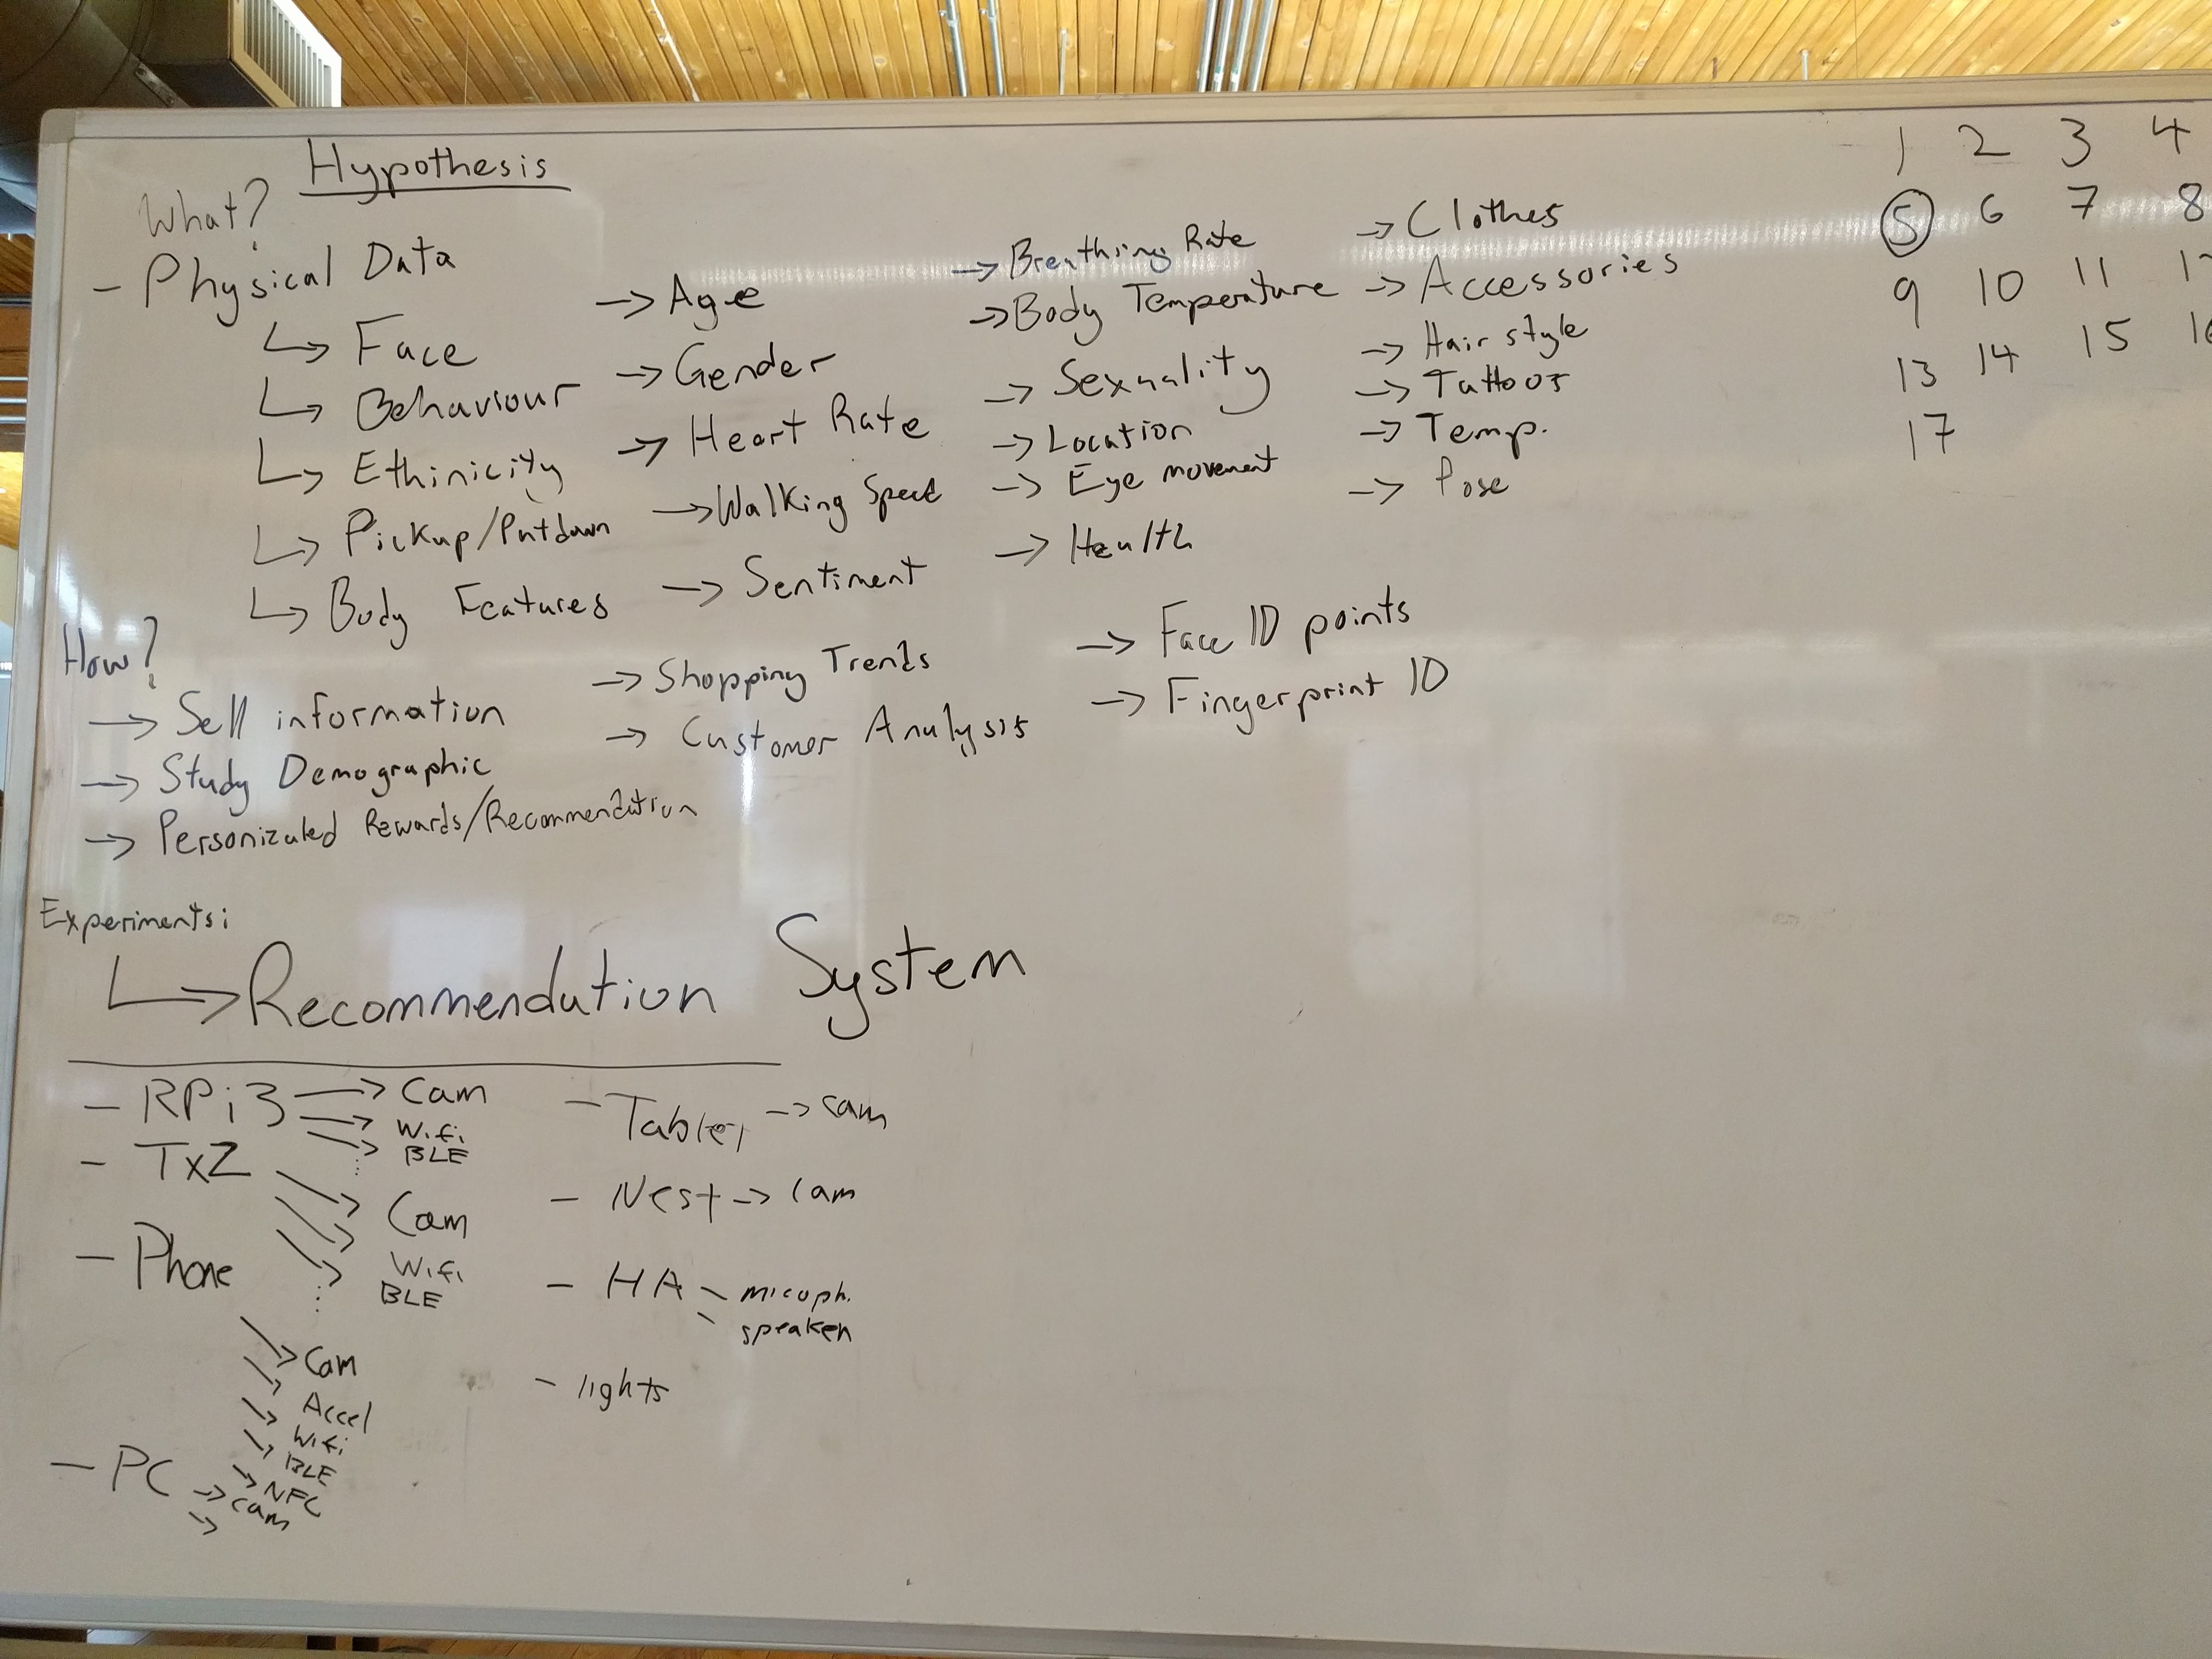 Hypothesis
What?
- Physical Data
↳ Face
↳ Behaviour
↳ Ethinicity
↳ Pickup/Putdown
↳ Body Features
→ Age
→ Gender
→ Heart Rate
→ Walking Speed
→ Sentiment
→ Breathing Rate
→ Body Temperature
→ Sexuality
→ Location
→ Eye movement
→ Health
→ Clothes
→ Accessories
→ Hair style
→ Tattoos
→ Temp.
→ Pose
How?
→ Sell information
→ Study Demographic
→ Personizaled Rewards/Recommendation
→ Shopping Trends
→ Customer Analysis
→ Face ID points
→ Fingerprint ID
Experiments:
↳ Recommendation System
- RPi3 → Cam
→ Wifi
→ BLE
- Tx2
→ Cam
→ Wifi
→ BLE
- Phone
→ Cam
→ Accel
→ Wifi
→ BLE
→ NFC
- PC → cam
→
- Tablet → cam
- Nest → cam
- HA - micoph.
- speaker
- lights
1 2 3 4
5 6 7 8
9 10 11
13 14 15 16
17